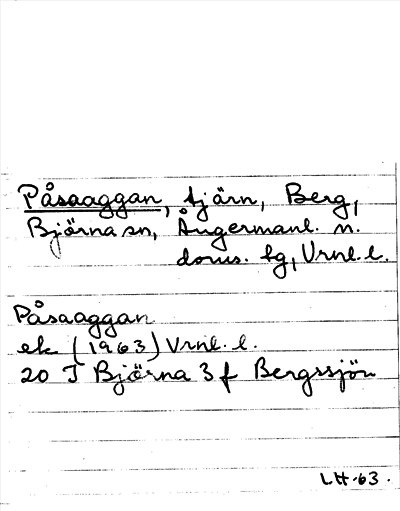 Påsaaggan, tjärn, Berg,
Björna sn, Ångermanl. n.
doms. tg, Vrnl. l.
Påsaaggan
ek (1963) Vrnl. l.
20 J Björna 3 f Bergssjön
LH-63.